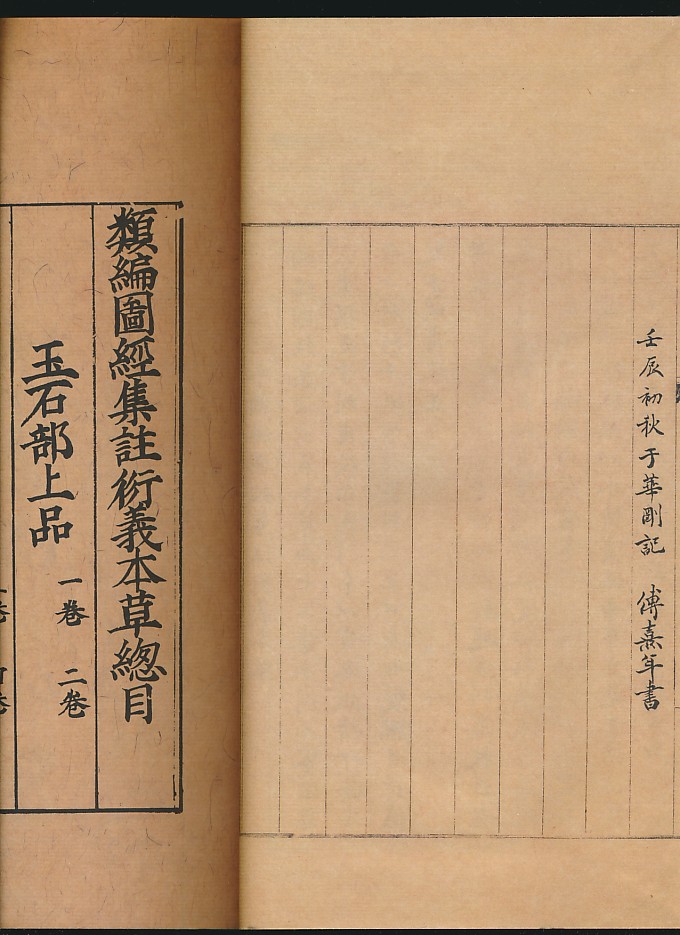 壬辰初秋于華剛記　傅熹年書
類編圖經集註衍義本草總目
玉石部上品　一卷　二卷